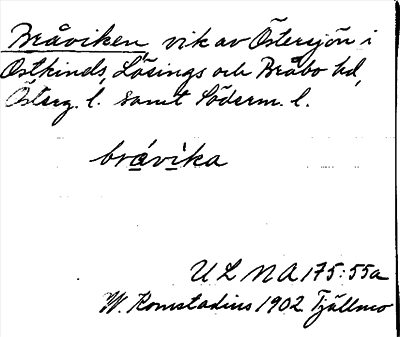 Bråviken, vik av Östersjön i
Östkinds, Lösings och Bråbo hd,
Österg. l. samt Söderm. l.
brávìka
ULMA 175:55a
W. Romstadius 1902 Tjällmo